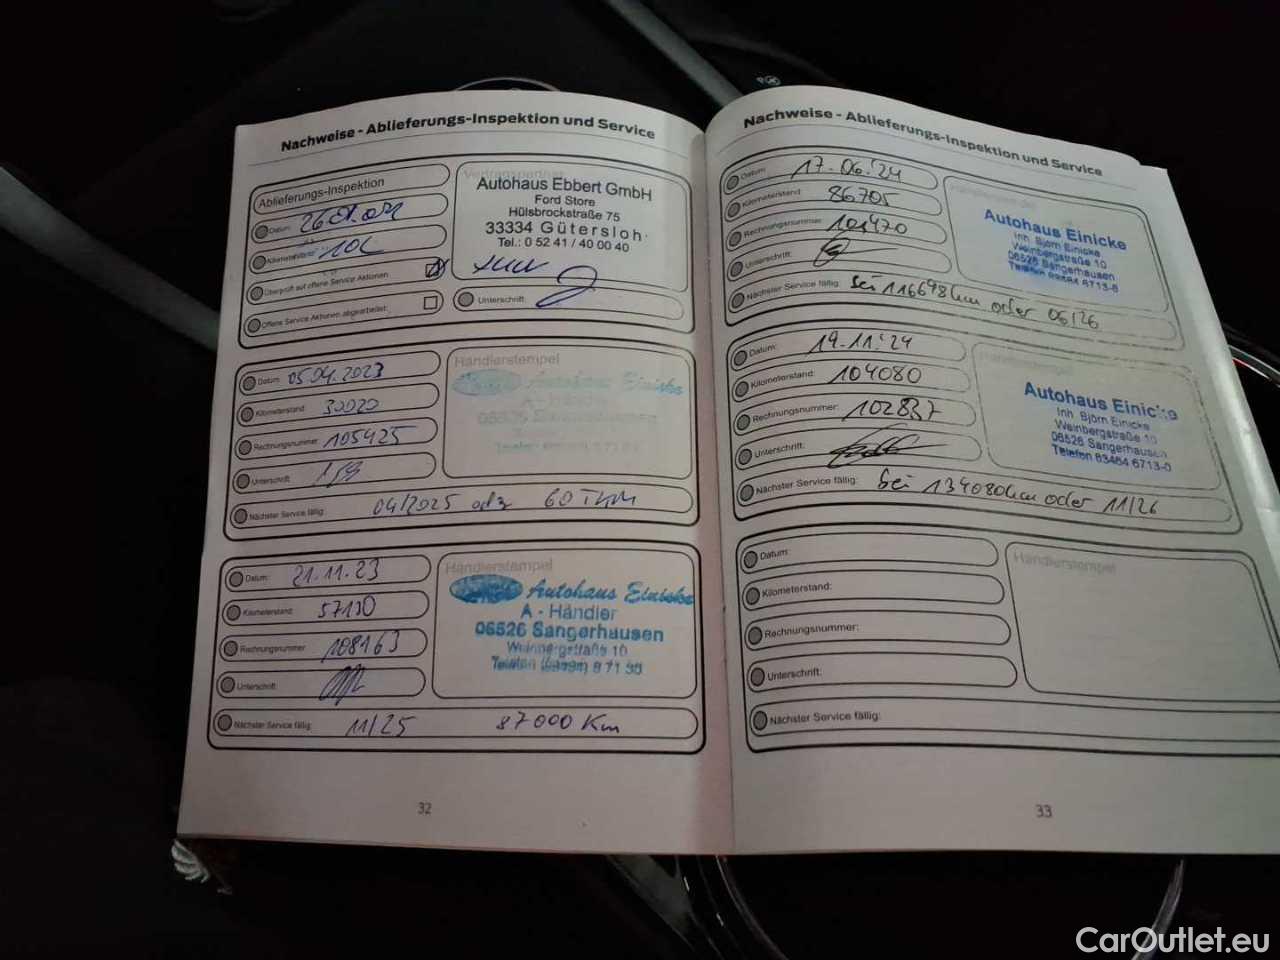 Nachweise - Ablieferungs-Inspektion und Service
Ablieferungs-Inspektion
Datum:
Kilometerstand:
Überprüft auf offene Service Aktionen
Offene Service Aktionen abgearbeitet:
Vertragspartner
Autohaus Ebbert GmbH
Ford Store
Hülsbrockstraße 75
33334 Gütersloh
Tel.: 0 52 41 / 40 00 40
Unterschrift:
Datum: 05.04.2023
Kilometerstand: 30020
Rechnungsnummer: 105425
Unterschrift:
Nächster Service fällig: 04/2025
Händlerstempel
Autohaus Einicke
A - Händler
06526 Sangerhausen
Datum: 21.11.23
Kilometerstand: 57130
Rechnungsnummer 108163
Unterschrift:
Nächster Service fällig: 11/25 87000 Km
Händlerstempel
Autohaus Einicke
A - Händler
06526 Sangerhausen
Weinbergstraße 10
32
Nachweise - Ablieferungs-Inspektion und Service
Datum: 17.06.'24
Kilometerstand: 86705
Rechnungsnummer: 101470
Unterschrift:
Nächster Service fällig: bei 116698km oder 06/26
Autohaus Einicke
Inh. Björn Einicke
Weinbergstraße 10
06526 Sangerhausen
Datum: 19.11.'24
Kilometerstand: 104080
Rechnungsnummer: 102837
Unterschrift:
Nächster Service fällig: bei 134080km oder 11/26
Autohaus Einicke
Inh. Björn Einicke
Weinbergstraße 10
06526 Sangerhausen
Telefon 03464 6713-0
Datum:
Kilometerstand:
Rechnungsnummer:
Unterschrift:
Nächster Service fällig:
Händlerstempel
33
CarOutlet.eu